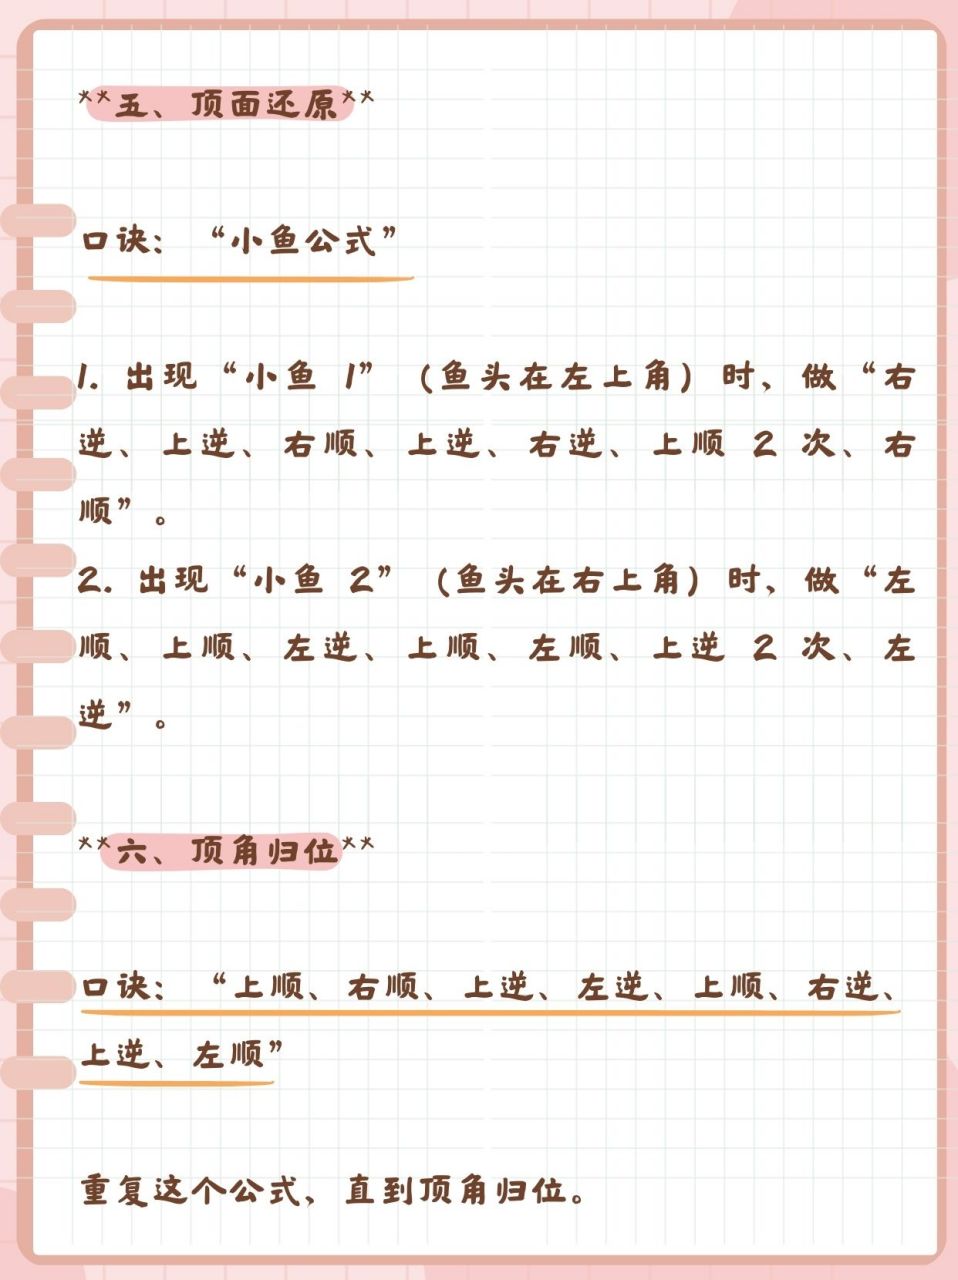 **五、顶面还原**
口诀：“小鱼公式”
1. 出现“小鱼 1”（鱼头在左上角）时、做“右
逆、上逆、右顺、上逆、右逆、上顺 2 次、右
顺”。
2. 出现“小鱼 2”（鱼头在右上角）时、做“左
顺、上顺、左逆、上顺、左顺、上逆 2 次、左
逆”。
**六、顶角归位**
口诀：“上顺、右顺、上逆、左逆、上顺、右逆、
上逆、左顺”
重复这个公式、直到顶角归位。